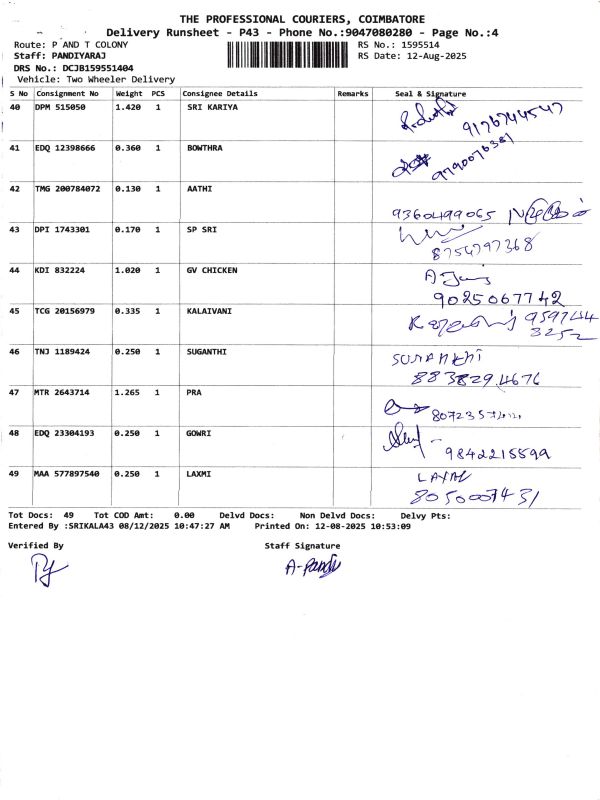 THE PROFESSIONAL COURIERS, COIMBATORE
Delivery Runsheet - P43 - Phone No.:9047080280 - Page No.:4
Route: P AND T COLONY RS No.: 1595514
Staff: PANDIYARAJ RS Date: 12-Aug-2025
DRS No.: DCJB159551404
Vehicle: Two Wheeler Delivery
S No Consignment No Weight PCS Consignee Details Remarks Seal & Signature
40 DPM 515050 1.420 1 SRI KARIYA 9176744547
41 EDQ 12398666 0.360 1 BOWTHRA 9790076381
42 TMG 200784072 0.130 1 AATHI 9360499065
43 DPI 1743301 0.170 1 SP SRI 8754797368
44 KDI 832224 1.020 1 GV CHICKEN 9025067742
45 TCG 20156979 0.335 1 KALAIVANI 959744
3252
46 TNJ 1189424 0.250 1 SUGANTHI
8838294676
47 MTR 2643714 1.265 1 PRA
48 EDQ 23304193 0.250 1 GOWRI 9842215599
49 MAA 577897540 0.250 1 LAXMI LAXMI
8050007431
Tot Docs: 49 Tot COD Amt: 0.00 Delvd Docs: Non Delvd Docs: Delvy Pts:
Entered By :SRIKALA43 08/12/2025 10:47:27 AM Printed On: 12-08-2025 10:53:09
Verified By Staff Signature
A-Pandi